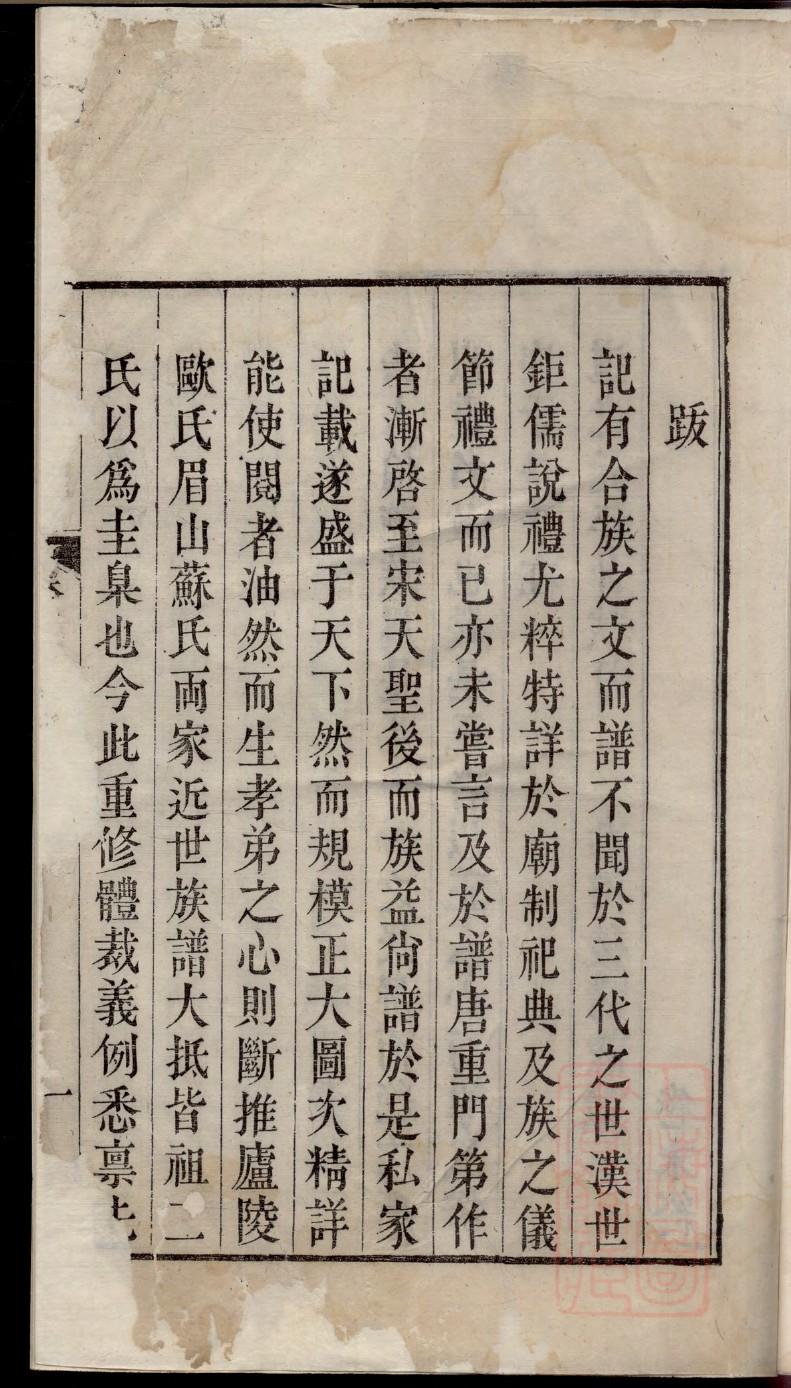 跋
記有合族之文而譜不聞於三代之世漢世
鉅儒說禮尤粹特詳於廟制祀典及族之儀
節禮文而已亦未嘗言及於譜唐重門第作
者漸啓至宋天聖後而族益尙譜於是私家
記載遂盛于天下然而規模正大圖次精詳
能使閱者油然而生孝弟之心則斷推廬陵
歐氏眉山蘇氏両家近世族譜大抵皆祖二
氏以爲圭臬也今此重修體裁義例悉禀
一